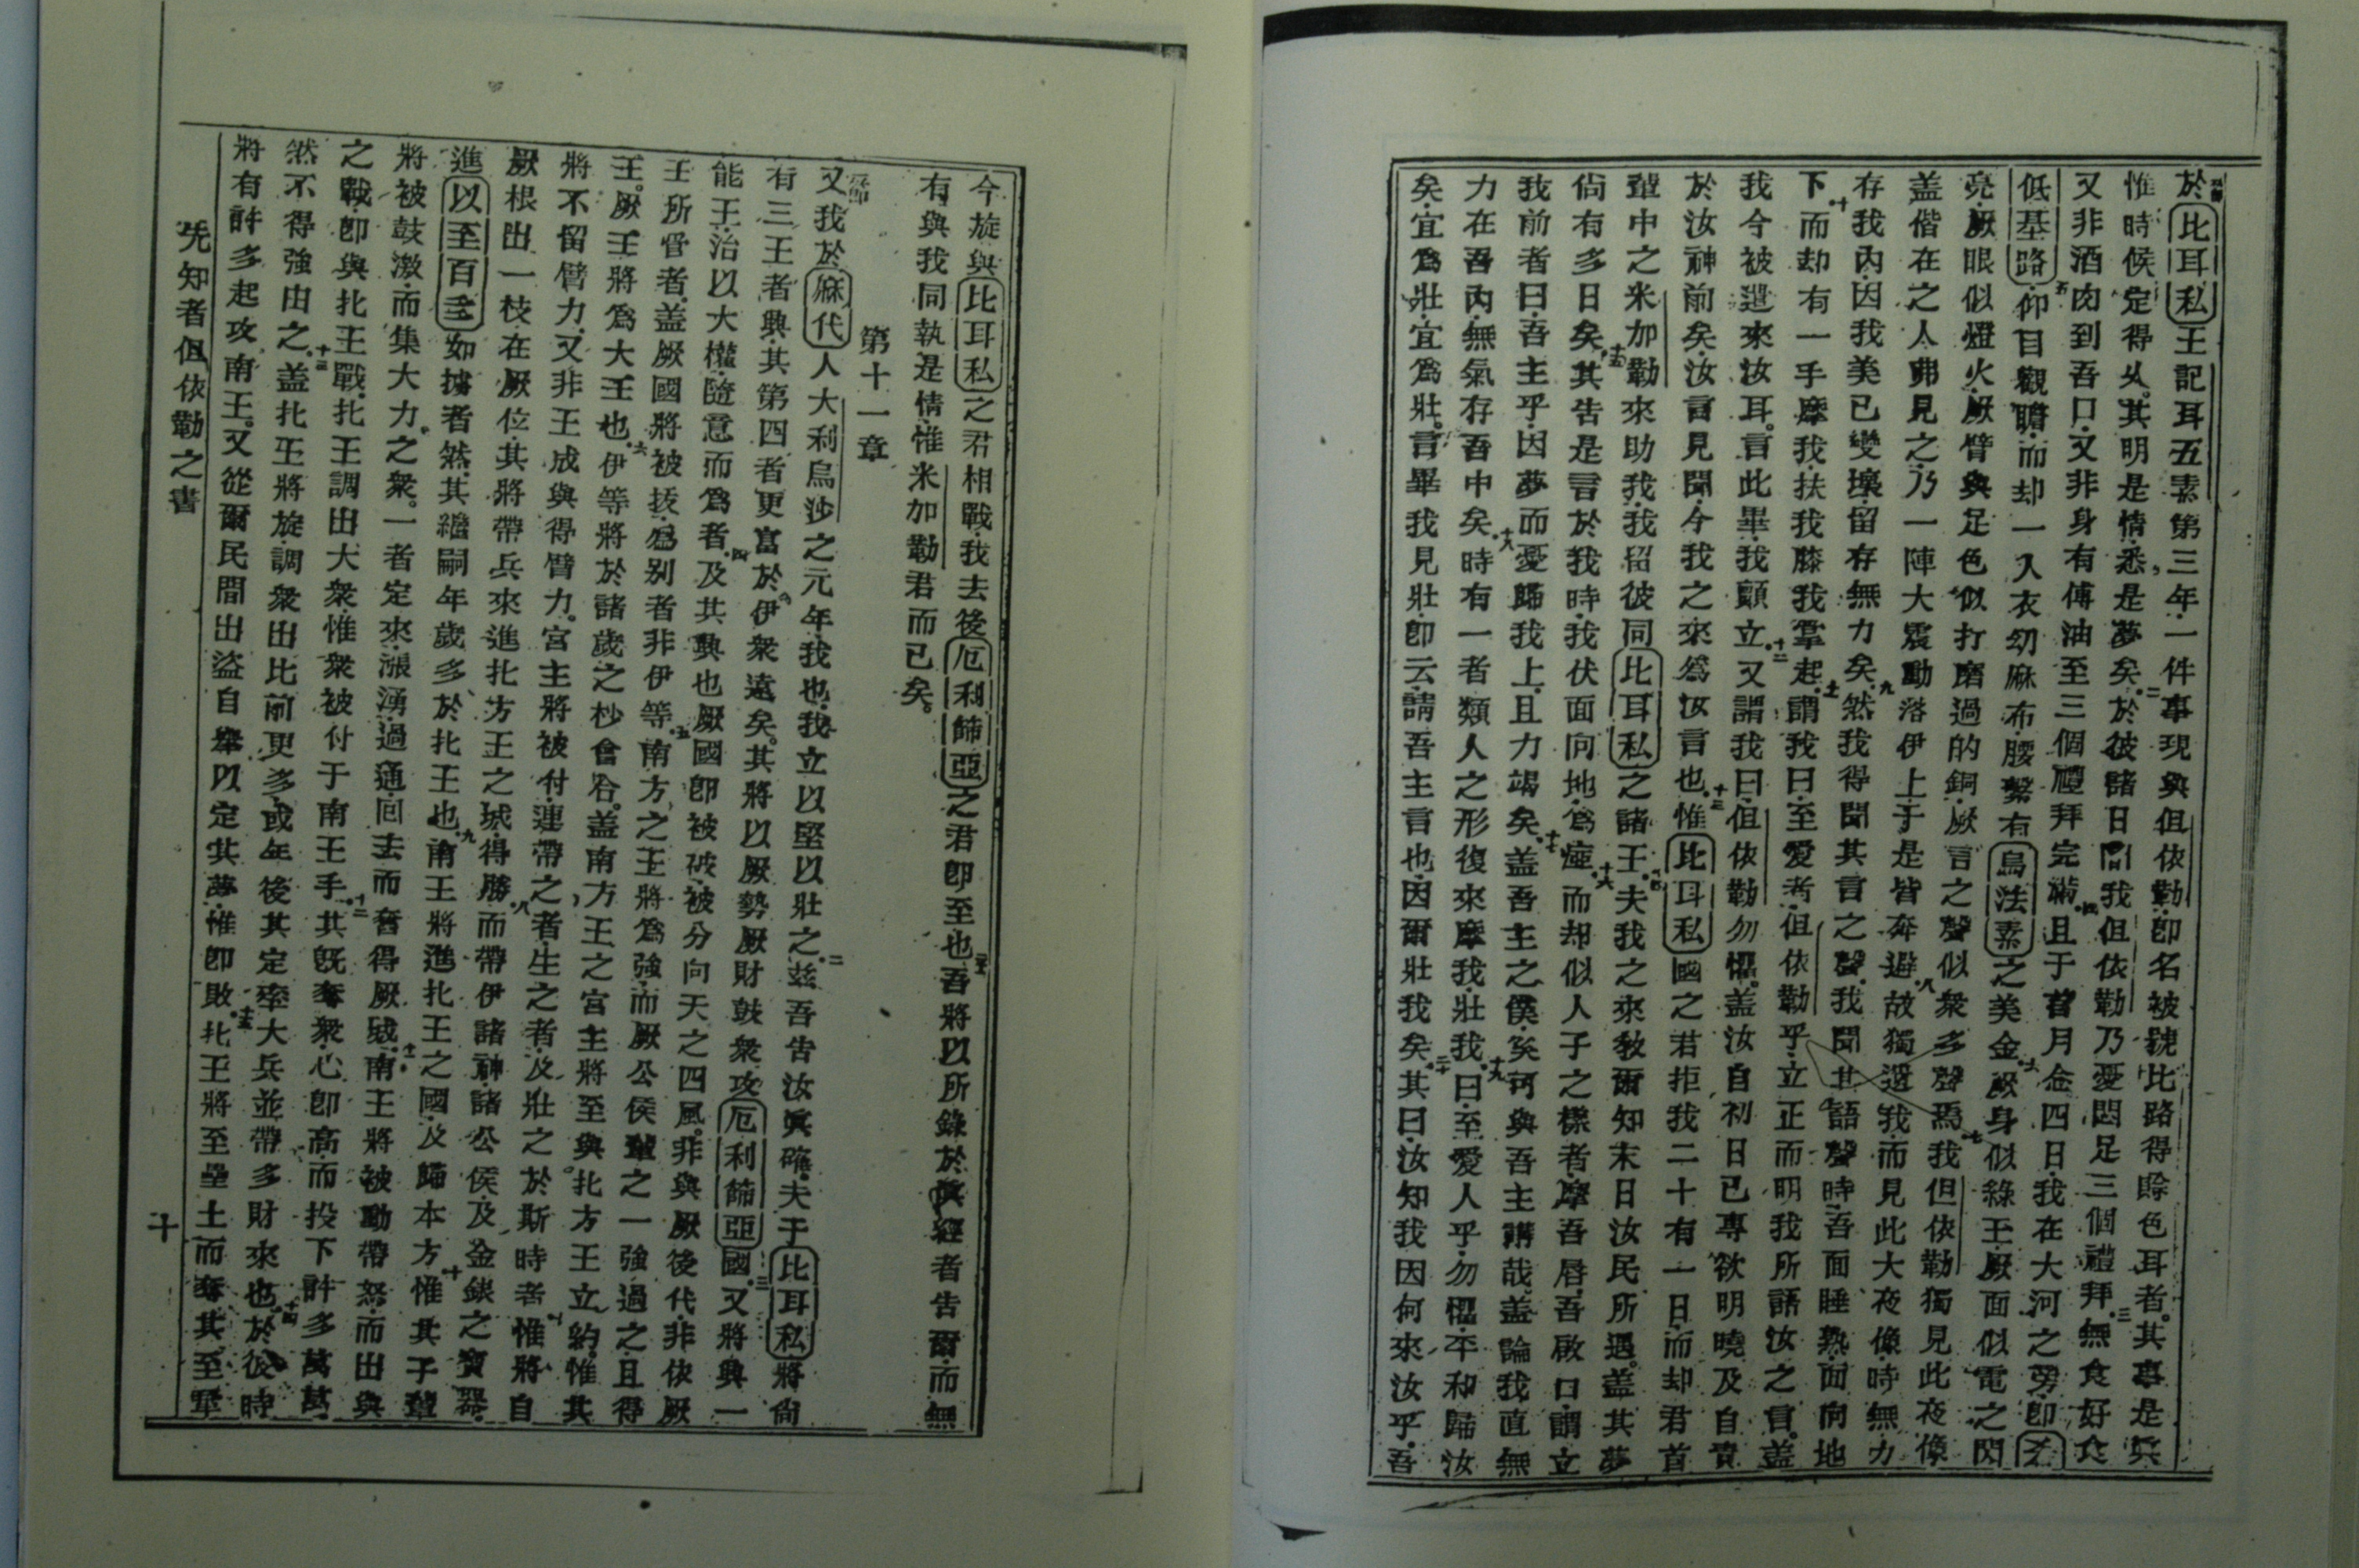 於比耳私王記耳五素第三年一件事現與但依勒即名被號比路得賖色耳者其事是眞
惟時候定得乆其明是情悉是夢矣二於彼諸日間我但依勒乃憂悶足三個禮拜三無食好食
又非酒肉到吾口又非身有傅油至三個禮拜完滿四且于首月念四日我在大河之旁即希
低基路五仰目觀瞻而却一人衣幼麻布腰繫有烏法素之美金六厥身似綠玉厥面似電之閃
亮厥眼似燈火厥臂與足色似打磨過的銅厥言之聲似衆多聲焉七我但依勒獨見此夜像
盖偕在之人弗見之乃一陣大震動落伊上于是皆奔避八故獨遺我而見此大夜像時無力
存我內因我美已變壞留存無力矣九然我得聞其言之聲我聞其語聲時吾面睡熟面向地
下十而却有一手摩我扶我膝我掌起十一謂我曰至愛者但依勒乎立正而明我所語汝之言盖
我今被遣來汝耳言此畢我顫立十二又謂我曰但依勒勿懼盖汝自初日已專欲明曉及自責
於汝神前矣汝言見聞今我之來爲汝言也十三惟比耳私國之君拒我二十有一日而却君首
輩中之米加勒來助我我留彼同比耳私之諸王十四夫我之來教爾知末日汝民所遇盖其夢
尙有多日矣十五其告是言於我時我伏面向地爲瘂十六而却似人子之樣者摩吾唇吾啟口謂立
我前者曰吾主乎因夢而憂歸我上且力竭矣十七盖吾主之僕奚可與吾主講哉盖論我直無
力在吾內無氣存吾中矣十八時有一者類人之形復來摩我壯我十九曰至愛人乎勿懼平和歸汝
矣宜爲壯宜爲壯言畢我見壯即云請吾主言也因爾壯我矣二十其曰汝知我因何來汝乎吾
今旋與比耳私之君相戰我去後厄利篩亞之君即至也吾將以所錄於眞經者告爾而無
有與我同執是情惟米加勒君而已矣
第十一章
又我於麻代人大利烏沙之元年我也我立以堅以壯之二玆吾告汝眞確夫于比耳私將尙
有三王者興其第四者更富於伊衆遠矣其將以厥勢厥財鼓衆攻厄利篩亞國三又將興一
能王治以大權隨意而爲者四及其興也厥國即被破被分向天之四風非與厥後代非依厥
王所管者盖厥國將被拔爲別者非伊等五南方之王將爲強而厥公侯輩之一強過之且得
王厥王將爲大王也六伊等將於諸歲之杪會合盖南方王之宮主將至與北方王立約惟其
將不留臂力又非王成與得臂力宮主將被付連帶之者生之者及壯之於斯時者七惟將自
厥根出一枝在厥位其將帶兵來進北方王之城得勝八而帶伊諸神諸公侯及金銀之寶器
進以至百多如擄者然其繼嗣年歲多於北王也九南王將進北王之國及歸本方十惟其子輩
將被鼓激而集大力之衆一者定來漲湧過通回去而奮得厥城十一南王將被動帶怒而出與
之戰即與北王戰北王調出大衆惟衆被付于南王手十二其既奪衆心即高而投下許多萬萬
然不得強由之十三盖北王將旋調衆出比前更多或年後其定率大兵並帶多財來也十四於彼時
將有許多起攻南王又從爾民間出盜自舉以定其夢惟即敗十五北王將至壘土而奪其至堅
先知者但依勒之書
十